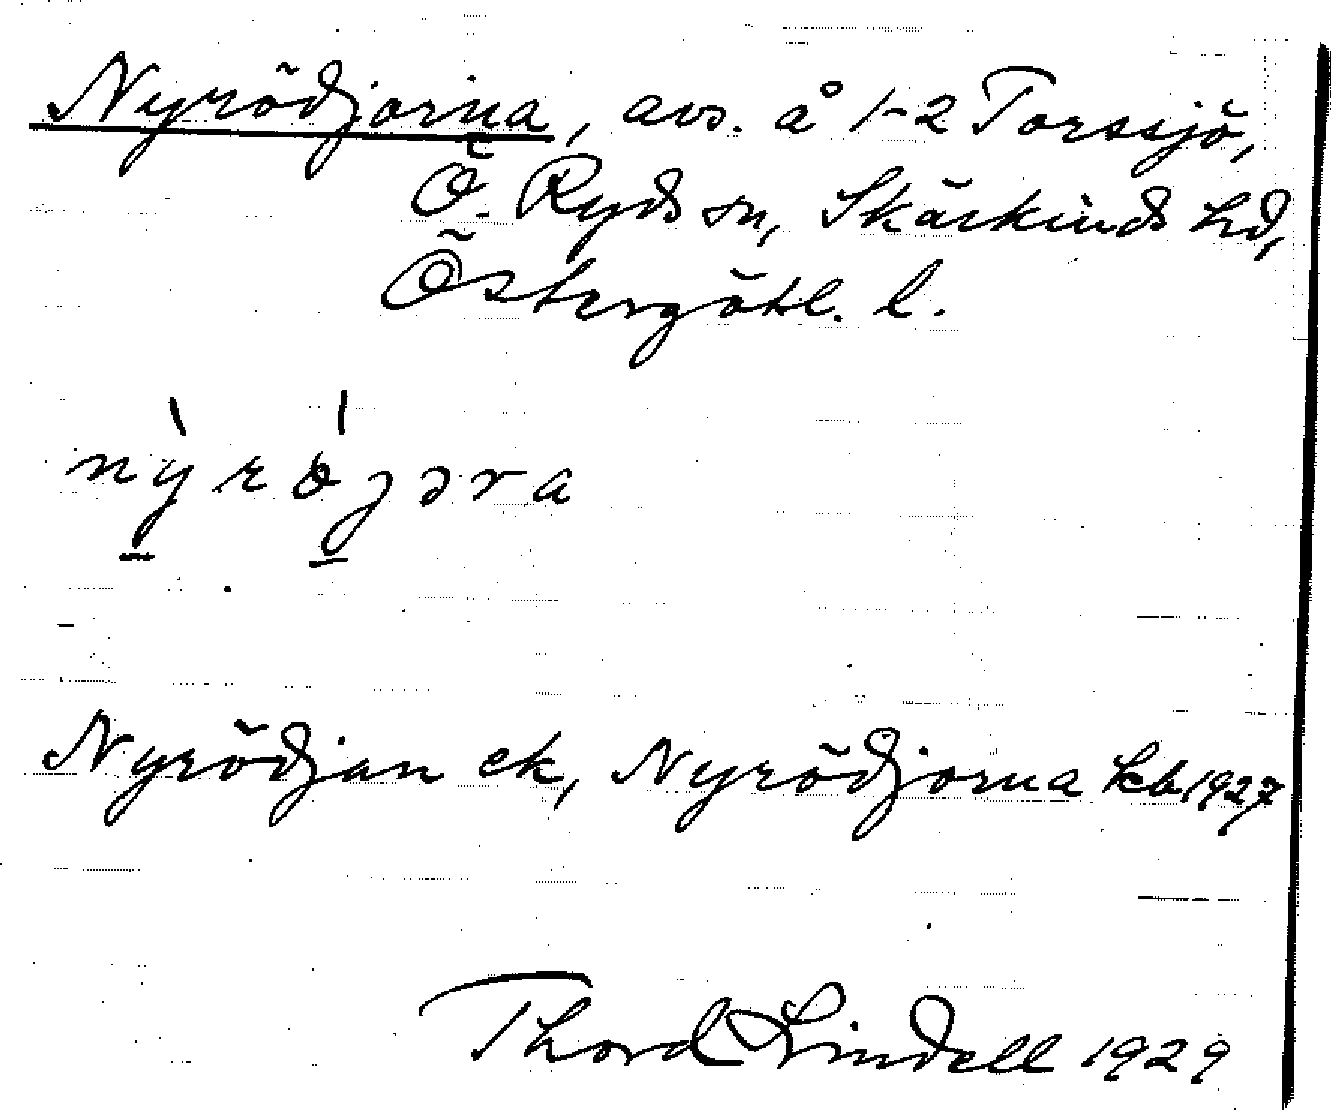 Nyrödjorna, avs. å 1-2 Torssjö,
Ö. Ryds sn, Skärkinds hd,
Östergötl. l.
nỳrö́jəra
Nyrödjan ek, Nyrödjorna kb 1927
Thord Lindell 1929